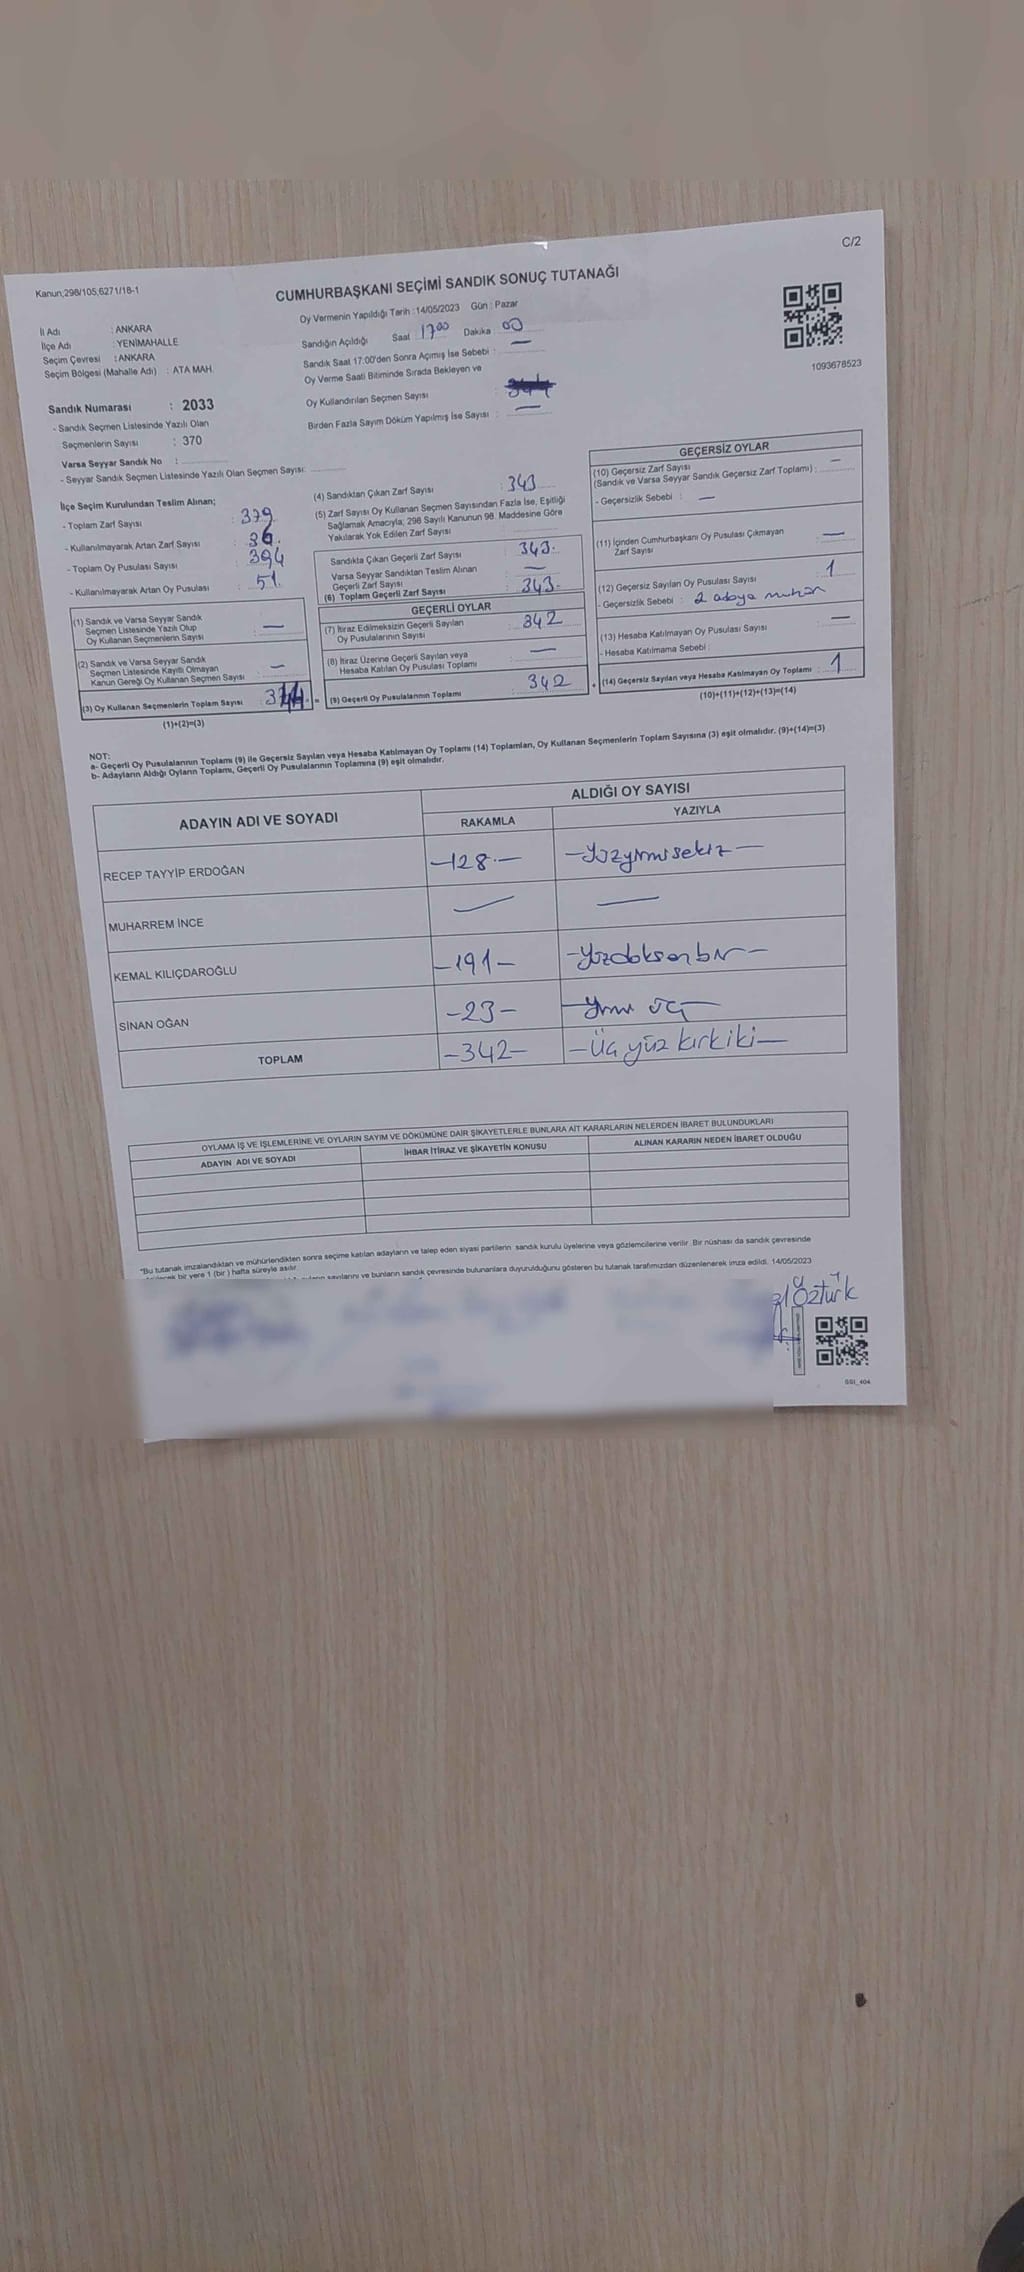 C/2
Kanun;298/105,6271/18-1
CUMHURBAŞKANI SEÇİMİ SANDIK SONUÇ TUTANAĞI
1093678523
İl Adı : ANKARA
İlçe Adı : YENİMAHALLE
Seçim Çevresi : ANKARA
Seçim Bölgesi (Mahalle Adı) : ATA MAH.
Sandık Numarası : 2033
- Sandık Seçmen Listesinde Yazılı Olan
Seçmenlerin Sayısı : 370
Varsa Seyyar Sandık No :
- Seyyar Sandık Seçmen Listesinde Yazılı Olan Seçmen Sayısı:
Oy Vermenin Yapıldığı Tarih : 14/05/2023 Gün : Pazar
Sandığın Açıldığı Saat : 17 00 Dakika : 00
Sandık Saat 17:00'den Sonra Açımış İse Sebebi : —
Oy Verme Saati Bitiminde Sırada Bekleyen ve
Oy Kullandırılan Seçmen Sayısı :
Birden Fazla Sayım Döküm Yapılmış İse Sayısı : —
İlçe Seçim Kurulundan Teslim Alınan;
- Toplam Zarf Sayısı : 379
- Kullanılmayarak Artan Zarf Sayısı : 36.
- Toplam Oy Pusulası Sayısı : 394
- Kullanılmayarak Artan Oy Pusulası : 51.
(1) Sandık ve Varsa Seyyar Sandık
Seçmen Listesinde Yazılı Olup
Oy Kullanan Seçmenlerin Sayısı : —
(2) Sandık ve Varsa Seyyar Sandık
Seçmen Listesinde Kayıtlı Olmayan
Kanun Gereği Oy Kullanan Seçmen Sayısı : —
(3) Oy Kullanan Seçmenlerin Toplam Sayısı :
(1)+(2)=(3)
(4) Sandıktan Çıkan Zarf Sayısı : 343
(5) Zarf Sayısı Oy Kullanan Seçmen Sayısından Fazla İse, Eşitliği
Sağlamak Amacıyla; 298 Sayılı Kanunun 98. Maddesine Göre
Yakılarak Yok Edilen Zarf Sayısı :
Sandıkta Çıkan Geçerli Zarf Sayısı : 343.
Varsa Seyyar Sandıktan Teslim Alınan
Geçerli Zarf Sayısı : —
(6) Toplam Geçerli Zarf Sayısı : 343.
GEÇERLİ OYLAR
(7) İtiraz Edilmeksizin Geçerli Sayılan
Oy Pusulalarının Sayısı : 342
(8) İtiraz Üzerine Geçerli Sayılan veya
Hesaba Katılan Oy Pusulası Toplamı : —
(9) Geçerli Oy Pusulalarının Toplamı : 342
GEÇERSİZ OYLAR
(10) Geçersiz Zarf Sayısı
(Sandık ve Varsa Seyyar Sandık Geçersiz Zarf Toplamı) : —
- Geçersizlik Sebebi : —
(11) İçinden Cumhurbaşkanı Oy Pusulası Çıkmayan
Zarf Sayısı : —
(12) Geçersiz Sayılan Oy Pusulası Sayısı : 1
- Geçersizlik Sebebi : 2 adaya
(13) Hesaba Katılmayan Oy Pusulası Sayısı : —
- Hesaba Katılmama Sebebi :
(14) Geçersiz Sayılan veya Hesaba Katılmayan Oy Toplamı : 1
(10)+(11)+(12)+(13)=(14)
NOT:
a- Geçerli Oy Pusulalarının Toplamı (9) ile Geçersiz Sayılan veya Hesaba Katılmayan Oy Toplamı (14) Toplamları, Oy Kullanan Seçmenlerin Toplam Sayısına (3) eşit olmalıdır. (9)+(14)=(3)
b- Adayların Aldığı Oyların Toplamı, Geçerli Oy Pusulalarının Toplamına (9) eşit olmalıdır.
ADAYIN ADI VE SOYADI ALDIĞI OY SAYISI
RAKAMLA YAZIYLA
RECEP TAYYİP ERDOĞAN —128.— —Yüzyirmisekiz—
MUHARREM İNCE — —
KEMAL KILIÇDAROĞLU —191— —Yüzdoksanbir—
SİNAN OĞAN —23— —Yirmi üç—
TOPLAM —342— —Üç yüz kırkiki—
OYLAMA İŞ VE İŞLEMLERİNE VE OYLARIN SAYIM VE DÖKÜMÜNE DAİR ŞİKAYETLERLE BUNLARA AİT KARARLARIN NELERDEN İBARET BULUNDUKLARI
ADAYIN ADI VE SOYADI İHBAR İTİRAZ VE ŞİKAYETİN KONUSU ALINAN KARARIN NEDEN İBARET OLDUĞU
*Bu tutanak imzalandıktan ve mühürlendikten sonra seçime katılan adayların ve talep eden siyasi partilerin sandık kurulu üyelerine veya gözlemcilerine verilir. Bir nüshası da sandık çevresinde
bir yere 1 (bir ) hafta süreyle asılır.
sayılarını ve bunların sandık çevresinde bulunanlara duyurulduğunu gösteren bu tutanak tarafımızdan düzenlenerek imza edildi. 14/05/2023
Öztürk
SSI_404